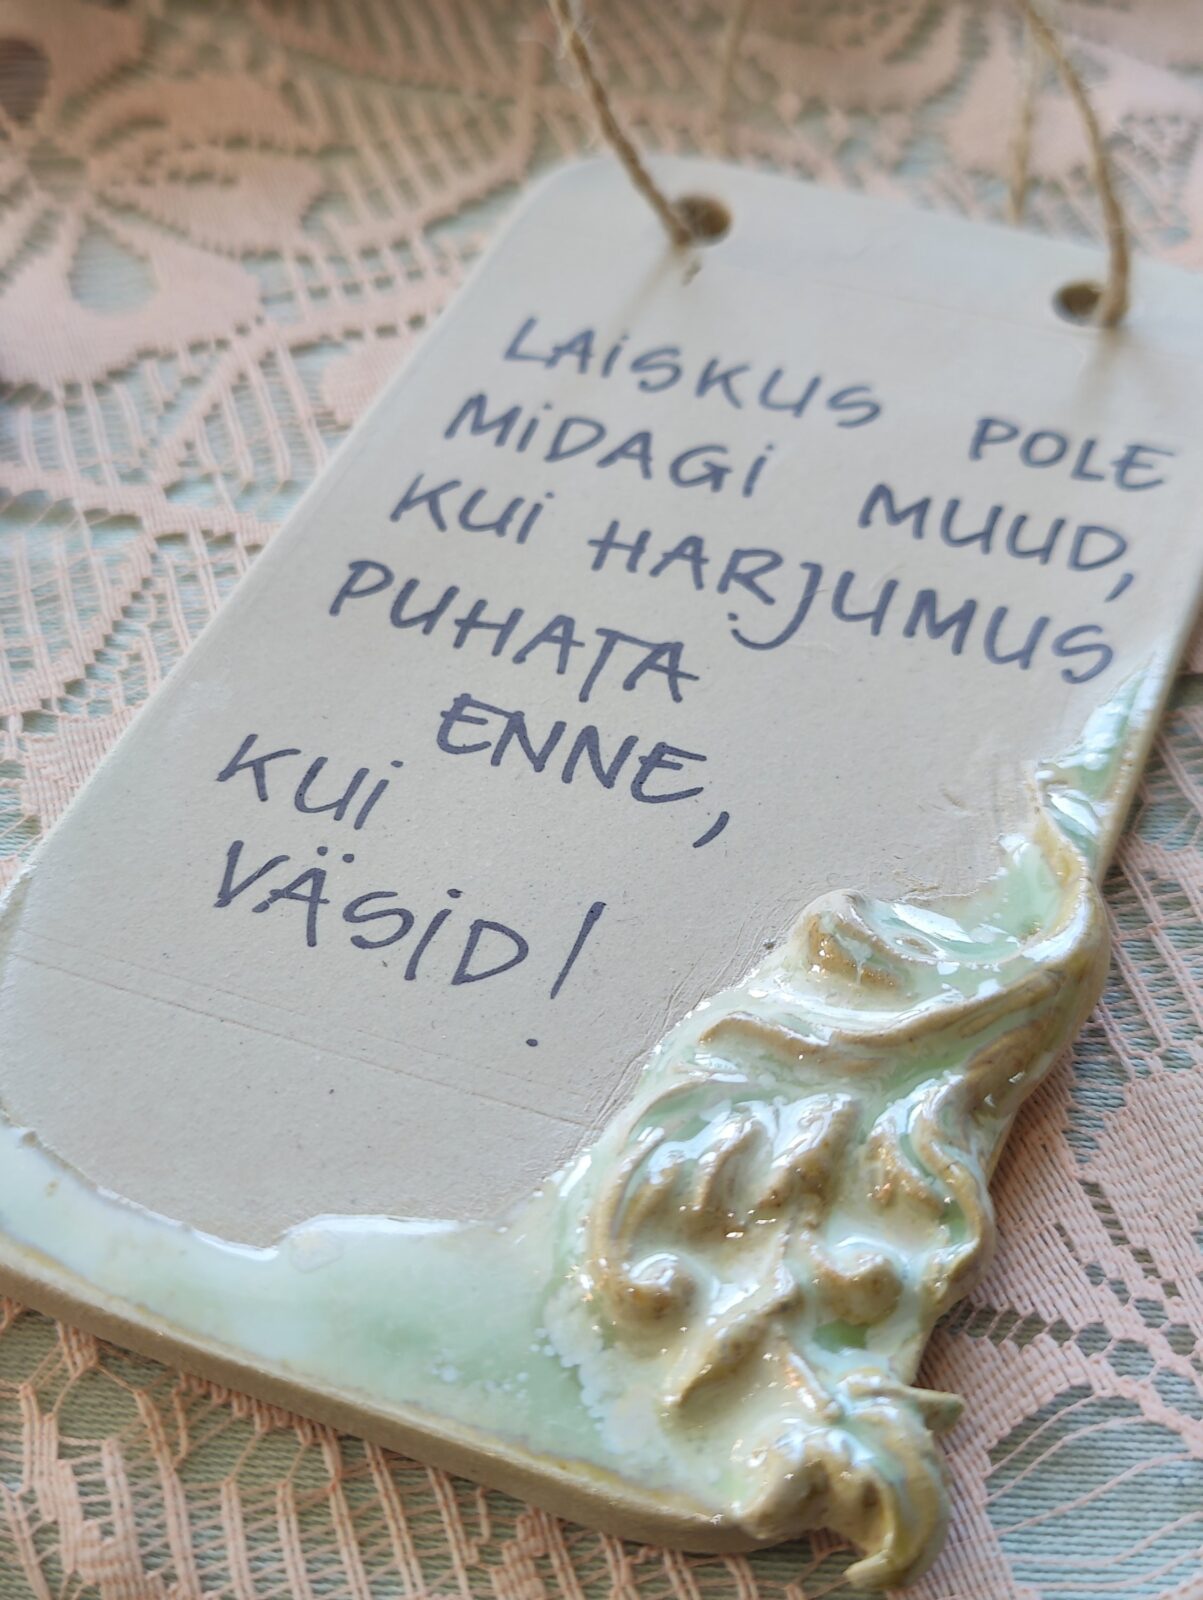 LAISKUS POLE
MIDAGI MUUD,
KUI HARJUMUS
PUHATA
ENNE,
KUI
VÄSID!